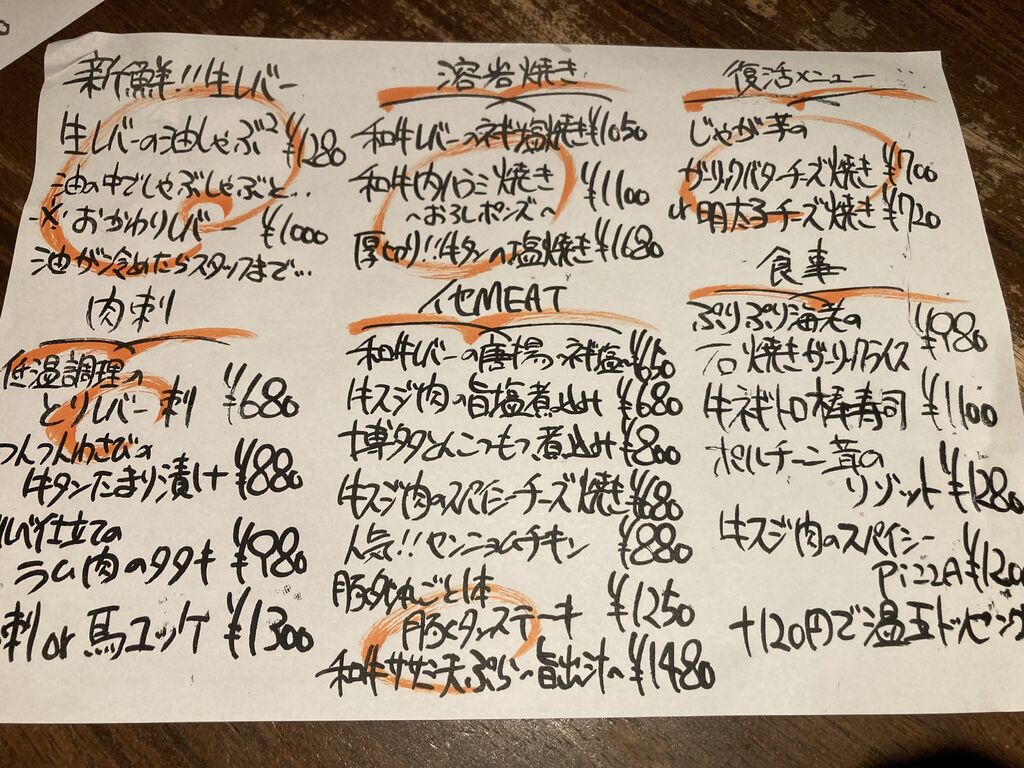 新鮮!!生レバー
生レバーの油しゃぶ² ¥1280
油の中でしゃぶしゃぶと...
※おかわりレバー ¥1000
油が冷めたらスタッフまで...
肉刺
低温調理の
とりレバー刺 ¥680
つんつんわさびの
牛タンたまり漬け ¥880
仕立ての
ラム肉のタタキ ¥980
刺 or 馬ユッケ ¥1300
溶岩焼き
和牛レバーのネギ塩焼き ¥1050
和牛肉ハラミ焼き ¥1100
～おろしポンズ～
厚切り!!牛タンの塩焼き ¥1680
他MEAT
和牛レバーの唐揚～ネギ塩～ ¥650
牛スジ肉の旨塩煮込み ¥680
博多とんこつもつ煮込み ¥800
牛スジ肉のスパイシーチーズ焼き ¥680
人気!!センニョムチキン ¥880
豚タンまるごと1本
豚タンステーキ ¥1250
和牛ササミ天ぷら～旨出汁～ ¥1480
復活メニュー
じゃが芋の
ガーリックバターチーズ焼き ¥700
or 明太子チーズ焼き ¥720
食事
ぷりぷり海老の
石焼きガーリックライス ¥980
牛ネギトロ棒寿司 ¥1100
ポルチーニ茸の
リゾット ¥1280
牛スジ肉のスパイシー
PiZZA ¥120
+120円で温玉トッピング